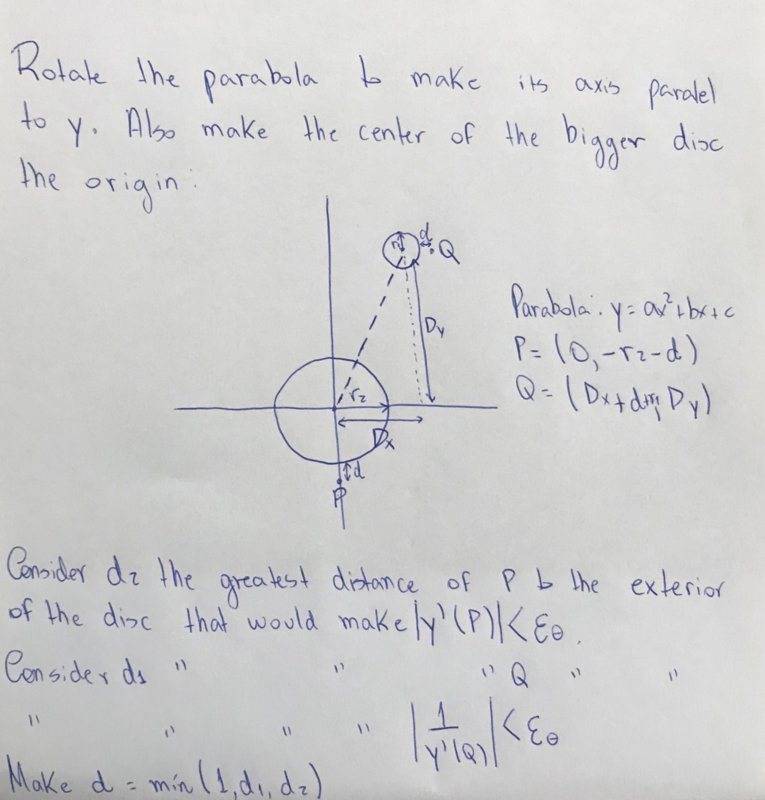 Rotate the parabola to make its axis paralel
to y. Also make the center of the bigger disc
the origin:
r1 d Q
Parabola: y = ax²+bx+c
Dy
P = (0, -r2-d)
Q = (Dx+d+r1, Dy)
r2
Dx
d
P
Consider d2 the greatest distance of P to the exterior
of the disc that would make |y'(P)| < εθ.
Consider d1 " " " Q " "
" " " " |1/y'(Q)| < εθ
Make d = min(1,d1,d2)